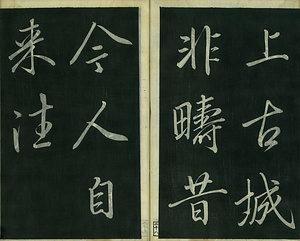 上古城
非疇昔
今人自
来注